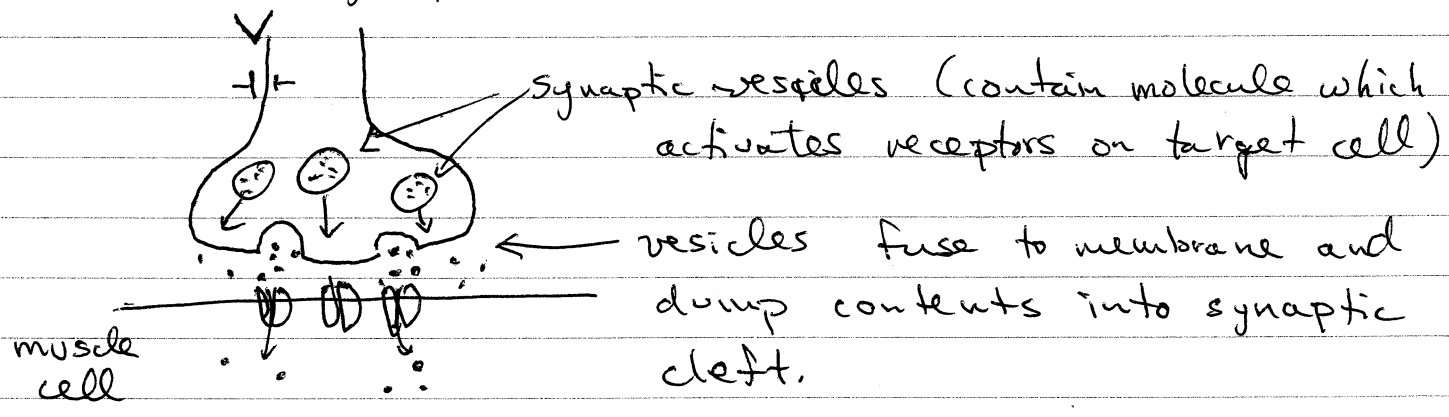 synaptic vesicles (contain molecule which
activates receptors on target cell)
vesicles fuse to membrane and
dump contents into synaptic
cleft.
muscle
cell